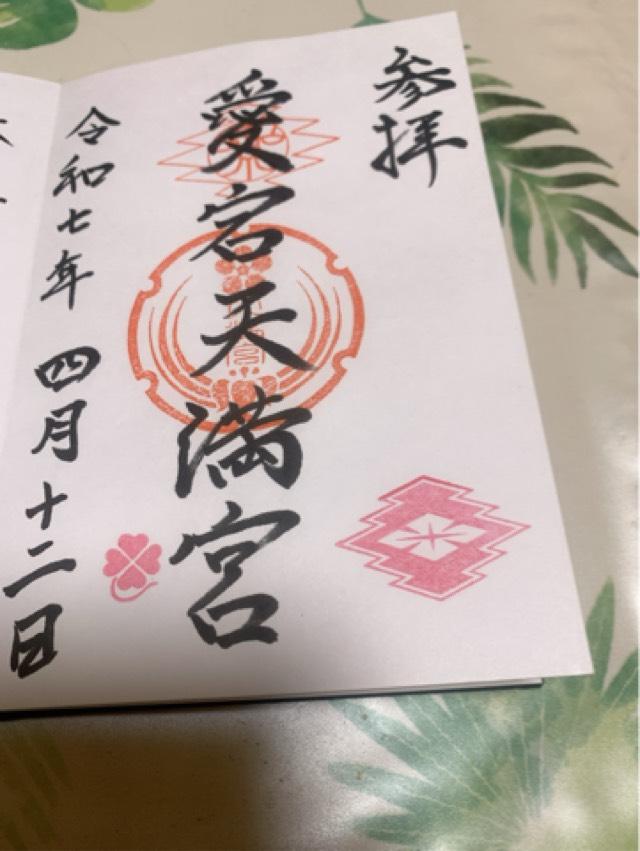 参拝
愛宕天満宮
令和七年 四月十二日